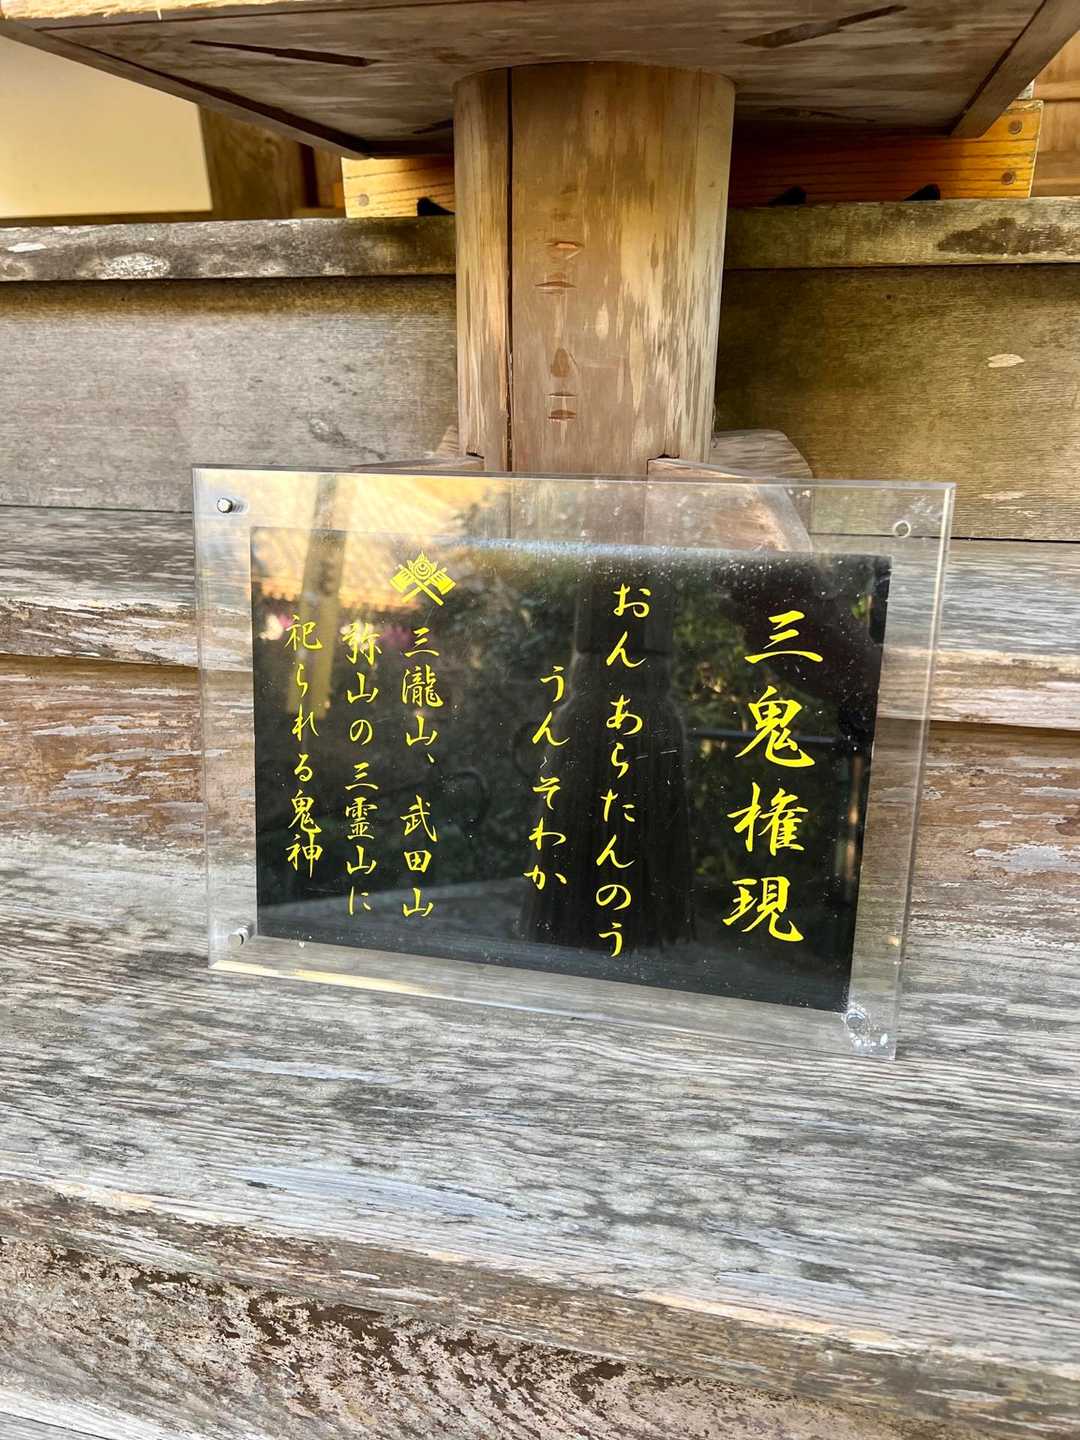 三鬼権現
おん あらたんのう
うん そわか
三瀧山、武田山
弥山の三霊山に
祀られる鬼神